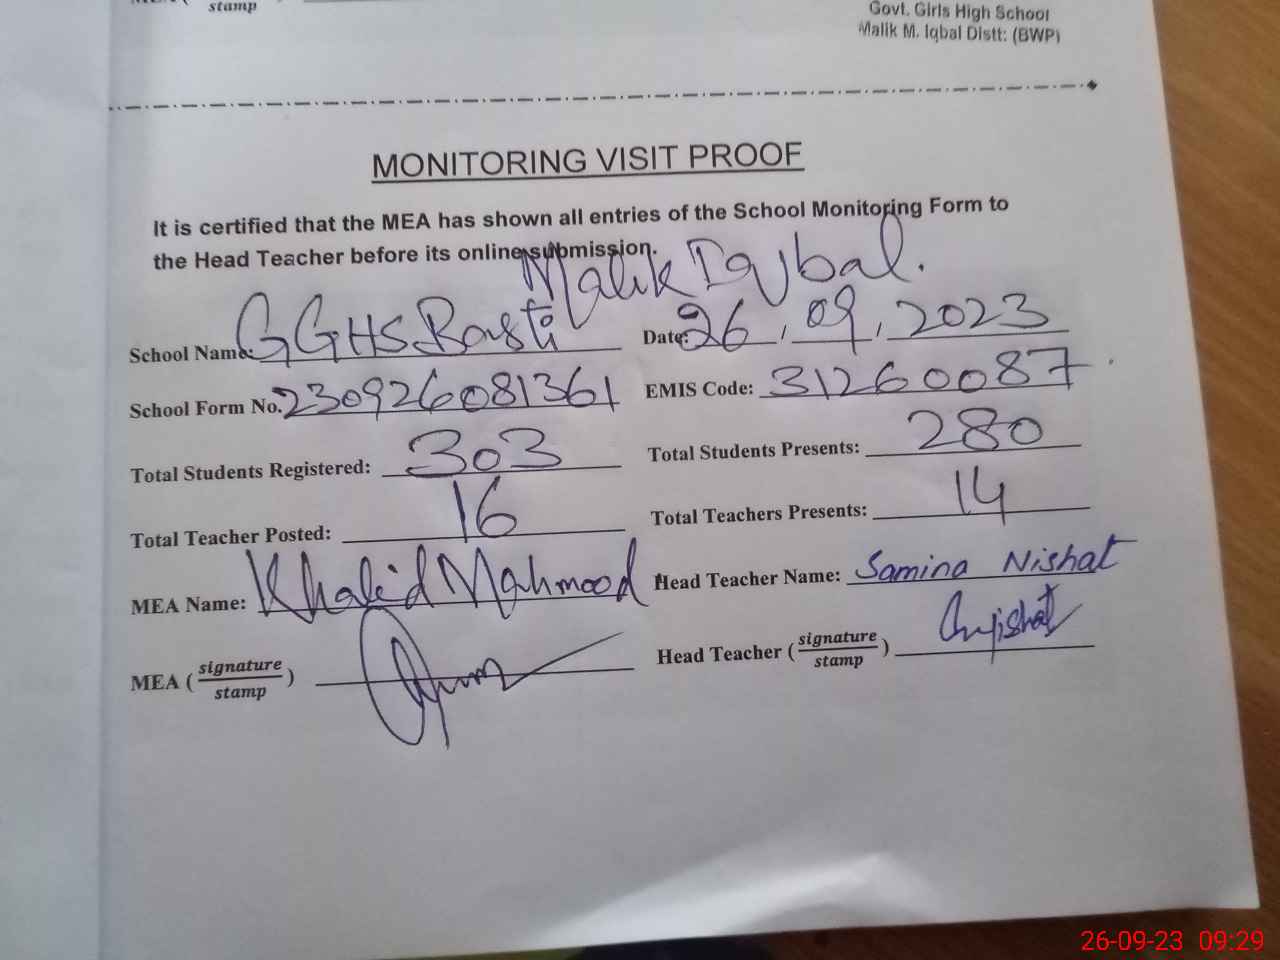 stamp
Govt. Girls High School
Malik M. Iqbal Distt: (BWP)
MONITORING VISIT PROOF
It is certified that the MEA has shown all entries of the School Monitoring Form to
the Head Teacher before its online submission.
School Name: GGHS Basti Malik Iqbal. Date: 26, 09, 2023
School Form No. 230926081361 EMIS Code: 31260087
Total Students Registered: 303 Total Students Presents: 280
Total Teacher Posted: 16 Total Teachers Presents: 14
MEA Name: Khalid Mahmood Head Teacher Name: Samina Nishat
MEA (signature/stamp) Head Teacher (signature/stamp)
26-09-23 09:29